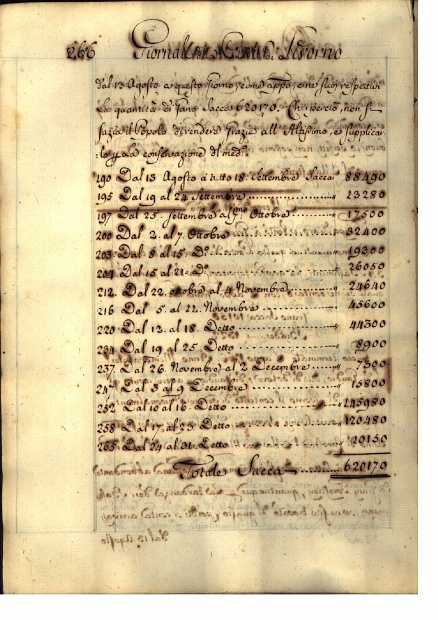 266 Giornale Livorno
dal 13 Agosto a questo giorno, come appare ne suoi respettivi
La quantità di Grano Sacca 620170. Che perciò non si
sazia il Popolo di rendere Grazie all' Altissimo, e supplicar
-lo p la conservazione del med.º
190 Dal 13 Agosto a tutto 18 Settembre Sacca 88490
195 Dal 19 al 24 Settembre 13280
197 Dal 25 Settembre al pmo Ottobre 17500
200 Dal 2 al 7 Ottobre 32400
203 Dal 8 al 15 Dº 19300
204 Dal 15 al 21 Dº 26050
212 Dal 22 Ottobre al 4 Novembre 24640
216 Dal 5 al 12 Novembre 45600
220 Dal 13 al 18 Detto 44300
234 Dal 19 al 25 Detto 8900
237 Dal 26 Novembre al 2 Decembre 7300
247 Dal 3 al 9 Decembre 15800
252 Dal 10 al 16 Detto 145980
258 Dal 17 al 23 Detto 120480
265 Dal 24 al 31 Detto 20150
Totale Sacca 620170